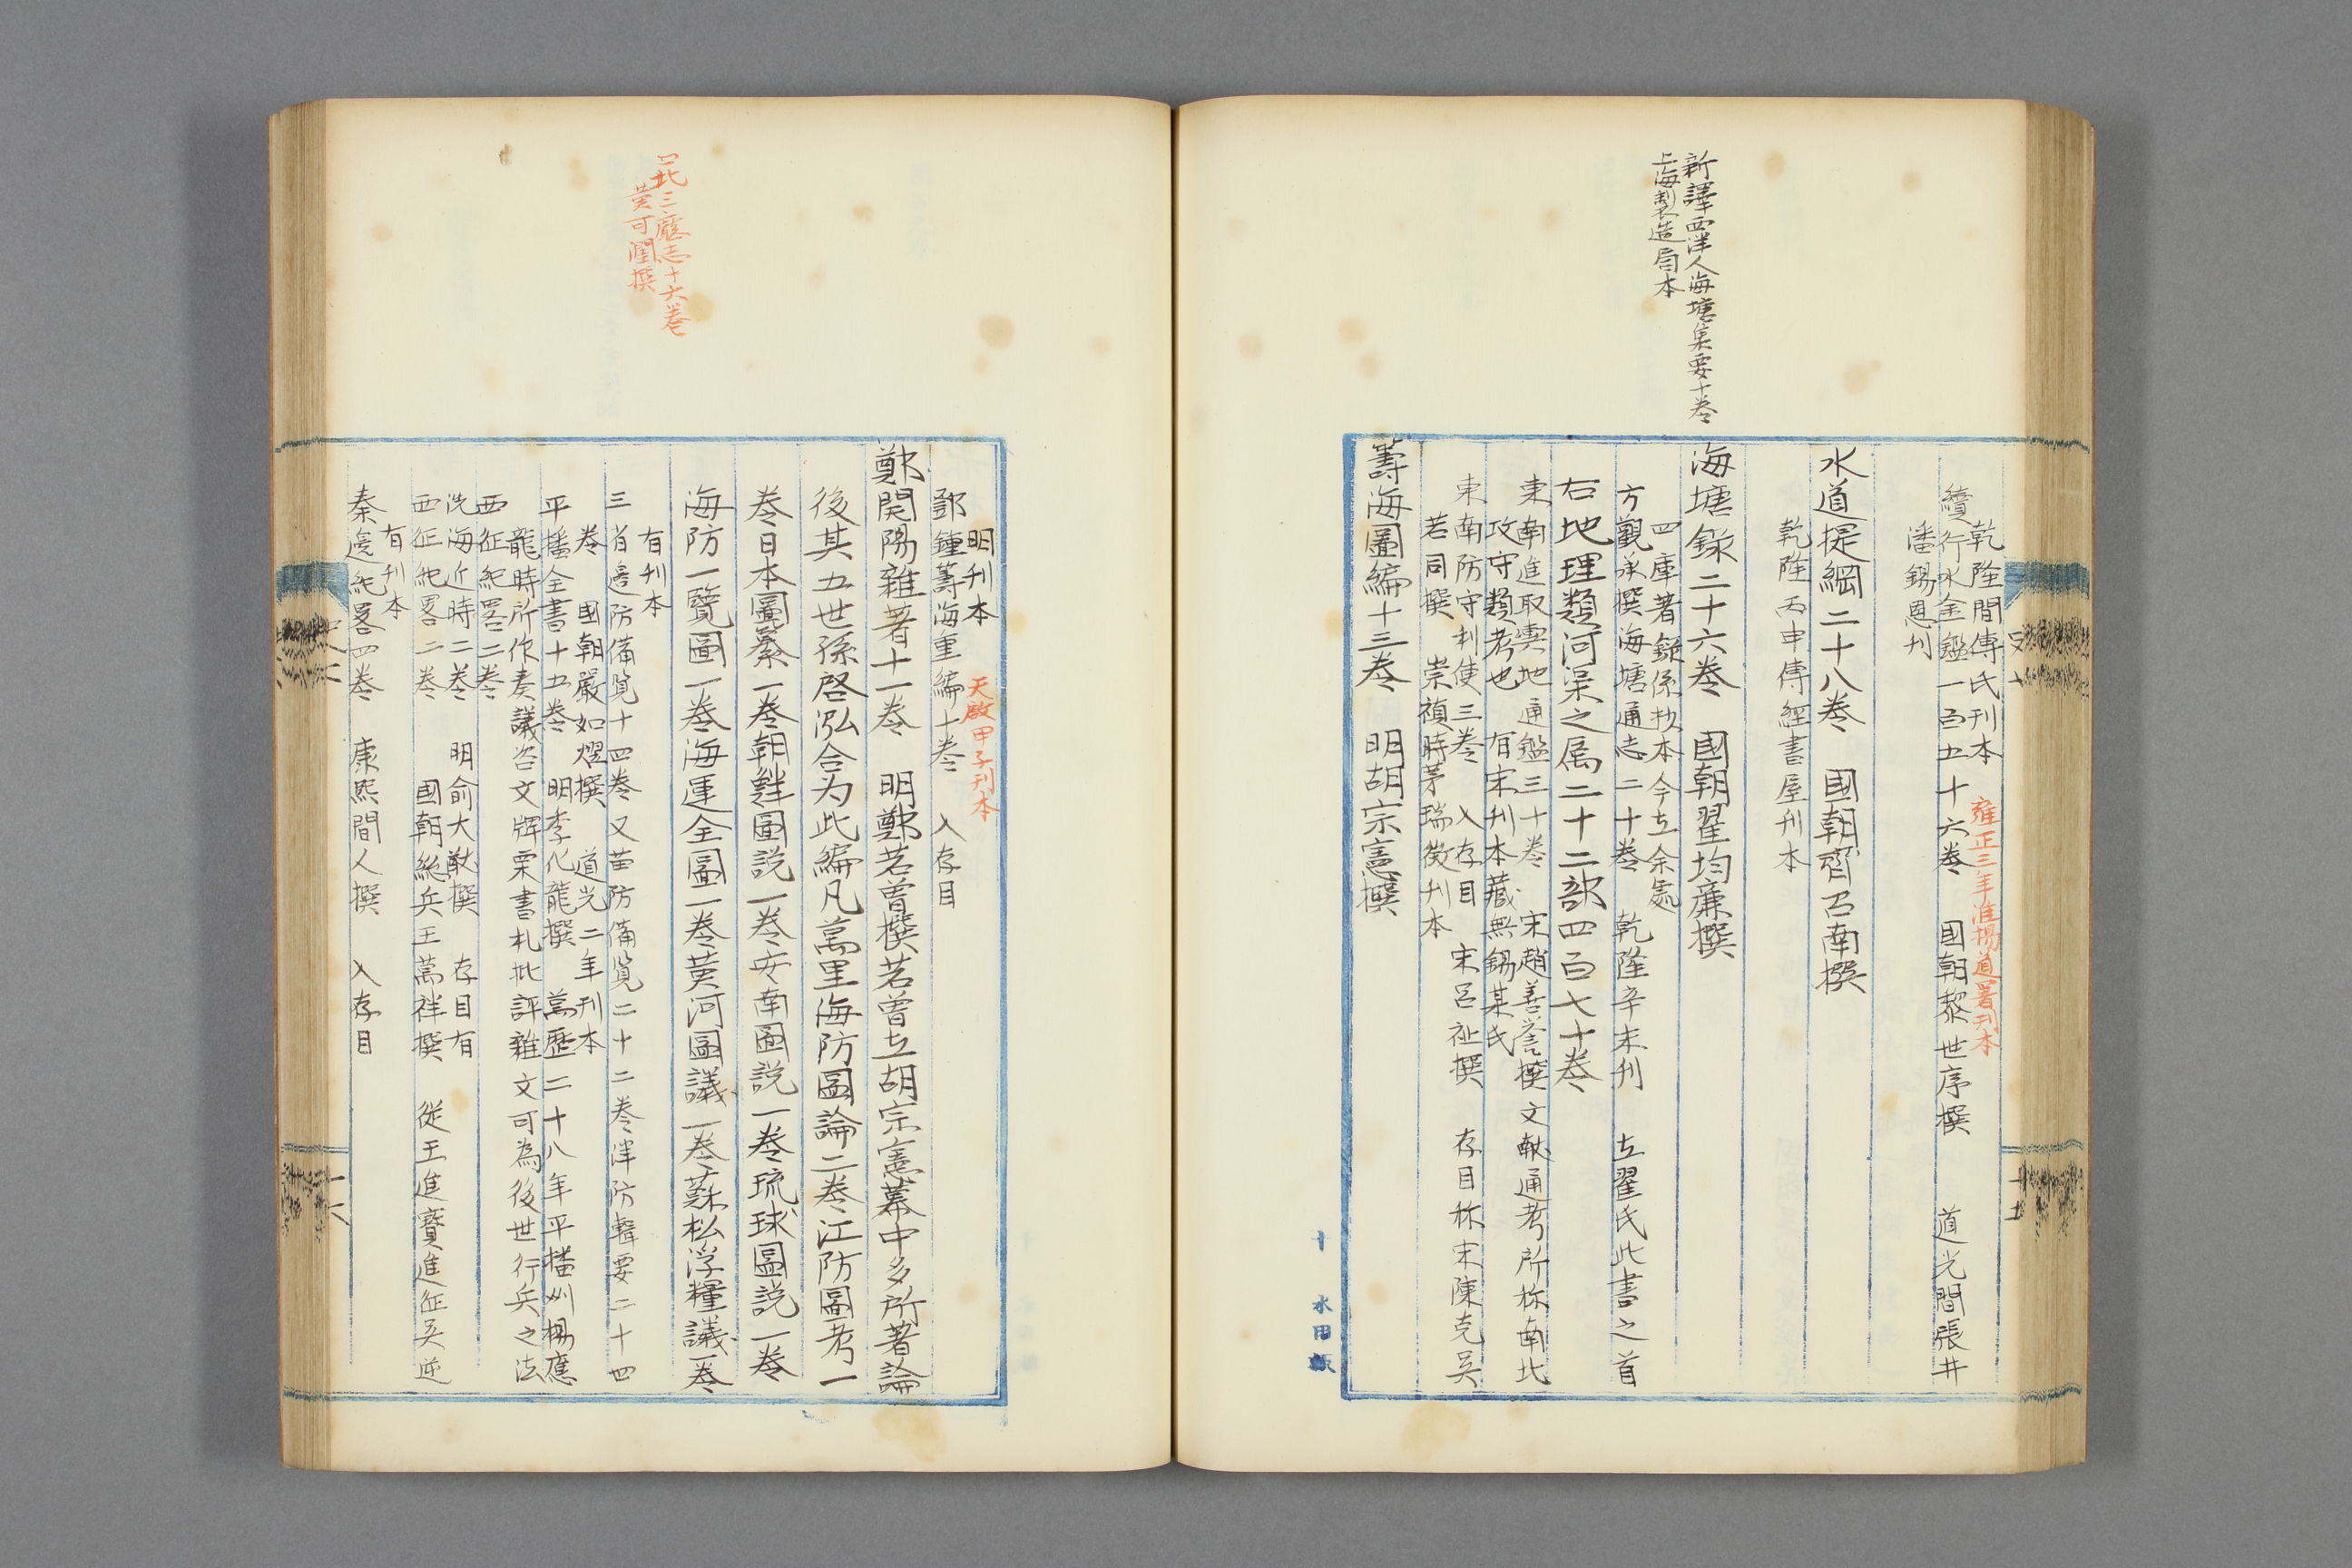 乾隆間傳氏刊本
雍正三年淮揚道署刊本
續行水金鑑一百五十六卷　國朝黎世序撰　道光間張井
潘錫恩刊
水道提綱二十八卷　國朝齊召南撰
乾隆丙申傳經書屋刊本
新譯西洋人海塘集要十卷
上海製造局本
海塘錄二十六卷　國朝翟均廉撰
四庫著錄係抄本今在余處
方觀承撰海塘通志二十卷　乾隆辛未刊　在翟氏此書之首
右地理類河渠之属二十二部四百七十卷
東南進取輿地通鑑三十卷　宋趙善誉撰文献通考所称南北
攻守類考也　有宋刊本藏無錫某氏
東南防守利使三卷　入存目　宋呂祉撰　存目称宋陳克吴
若同撰　崇禎時茅瑞徵刊本
籌海圖編十三卷　明胡宗憲撰
史十
十五
十
水田
明刊本　天啟甲子刊本
鄧鍾籌海重編十卷　入存目
鄭開陽雜著十一卷　明鄭若曾撰若曾在胡宗憲幕中多所著論
後其五世孫啓泓合为此編凡萬里海防圖論二卷江防圖考一
卷日本圖纂一卷朝鮮圖説一卷安南圖説一卷琉球圖説一卷
海防一覽圖一卷海運全圖一卷黄河圖議一卷蘇松浮糧議一卷
有刊本
三省邊防備覧十四卷又苗防備覧二十二卷洋防輯要二十四
卷　國朝嚴如熤撰　道光二年刊本
口北三廳志十六卷
黄可潤撰
平播全書十五卷　明李化龍撰　萬歷二十八年平播州楊應
龍時所作奏議咨文牌票書札批評雜文可為後世行兵之法
西征紀畧二卷
洗海近時二卷　明俞大猷撰　存目有
西征紀畧二卷　國朝總兵王萬祥撰　從王進寶進征吴逆
有刊本
秦邊紀畧四卷　康熙間人撰　入存目
史十
十六